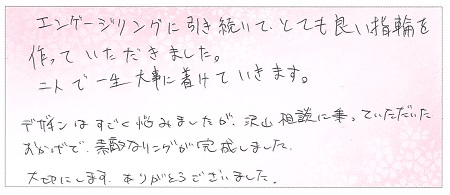 エンゲージリングに引き続いて、とても良い指輪を
作っていただきました。
二人で一生大事に着けていきます。
デザインはすごく悩みましたが、沢山相談に乗っていただいた
おかげで、素敵なリングが完成しました。
大切にします。ありがとうございました。